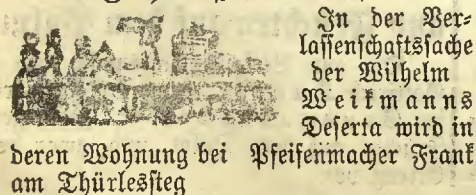 In der Ver=
laſſenſchaftsſache
der Wilhelm
Weikmanns
Deſerta wird in
deren Wohnung bei Pfeifenmacher Frank
am Thürlesſteg